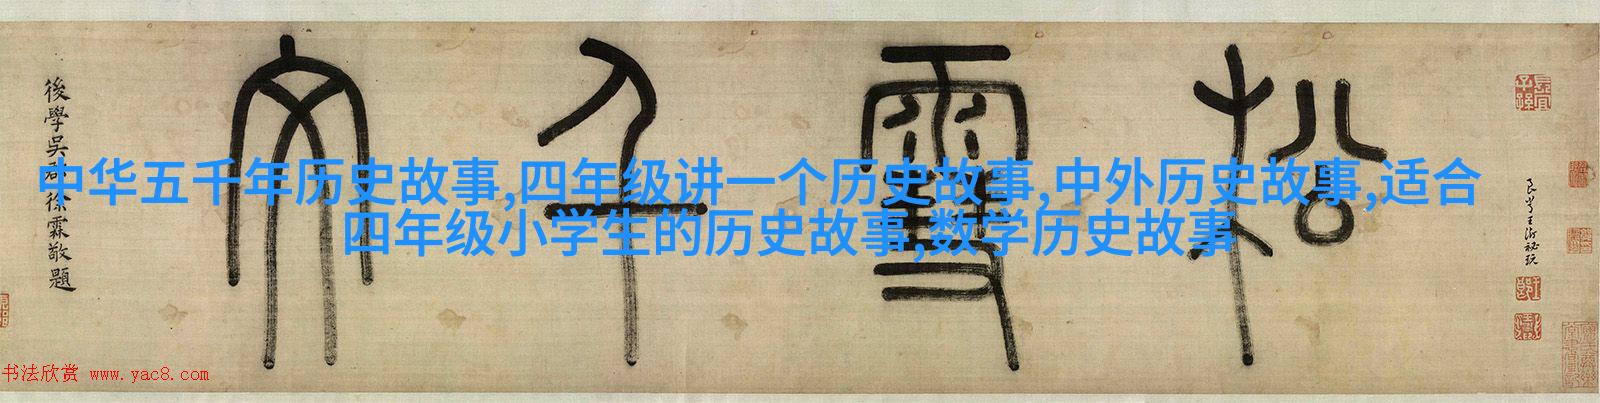 松雪千文
後學吳郡徐霖敬題
良常王澍祕玩
長宜子孫
中华五千年历史故事,四年级讲一个历史故事,中外历史故事,适合
四年级小学生的历史故事,数学历史故事
书法欣赏 www.yac8.com